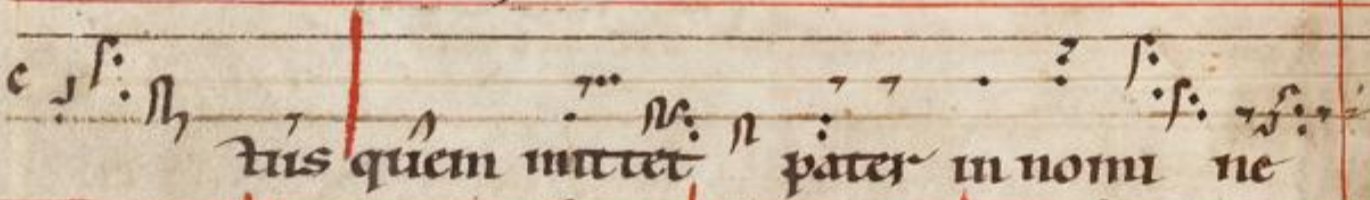 c
tus quem mittet pater in nomi ne